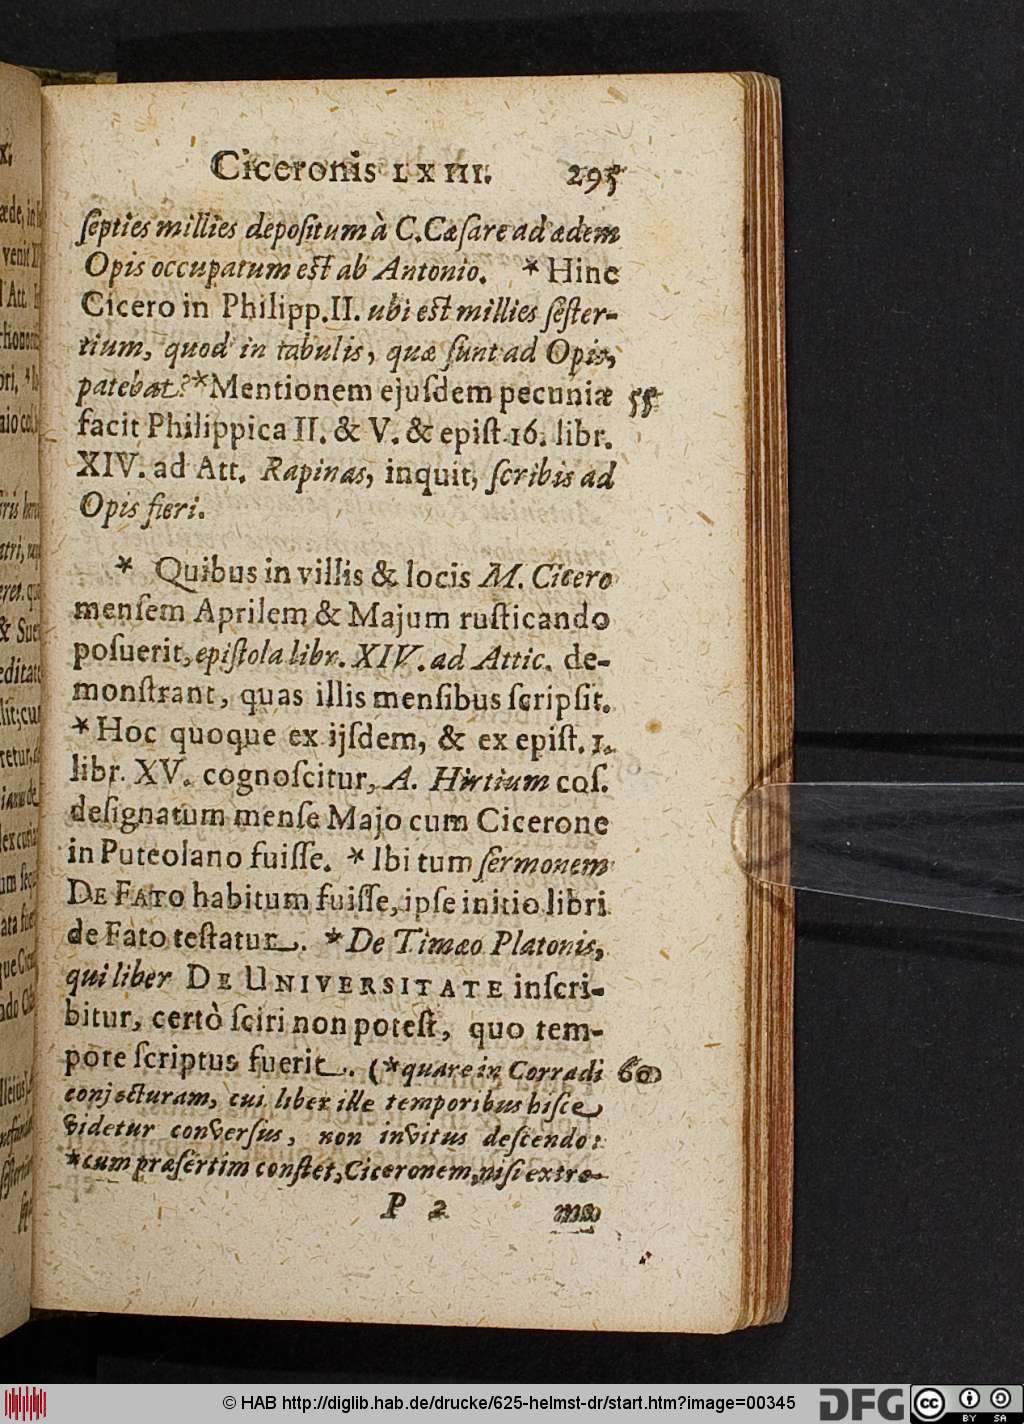 Ciceronis LXIII. 295
ſepties millies depoſitum à C. Cæſare ad ædem
Opis occupatum est ab Antonio. * Hinc
Cicero in Philipp. II. ubi est millies ſeſter-
tium, quod in tabulis, quæ ſunt ad Opis,
patebat? * Mentionem ejuſdem pecuniæ 55
facit Philippica II. & V. & epiſt. 16. libr.
XIV. ad Att. Rapinas, inquit, ſcribis ad
Opis fieri.
* Quibus in villis & locis M. Cicero
menſem Aprilem & Majum ruſticando
poſuerit, epiſtola libr. XIV. ad Attic. de-
monſtrant, quas illis menſibus ſcripſit.
* Hoc quoque ex ijſdem, & ex epiſt. 1.
libr. XV. cognoſcitur, A. Hirtium coſ.
deſignatum menſe Majo cum Cicerone
in Puteolano fuiſſe. * Ibi tum ſermonem
DE FATO habitum fuiſſe, ipſe initio libri
de Fato teſtatur. * De Timæo Platonis,
qui liber DE UNIVERSITATE inſcri-
bitur, certò ſciri non poteſt, quo tem-
pore ſcriptus fuerit. (* quare in Corradi 60
conjecturam, cui liber ille temporibus hiſce
videtur converſus, non invitus deſcendo:
* cum præſertim conſtet, Ciceronem, niſi extre-
P 2 mo
© HAB http://diglib.hab.de/drucke/625-helmst-dr/start.htm?image=00345
DFG
cc BY SA